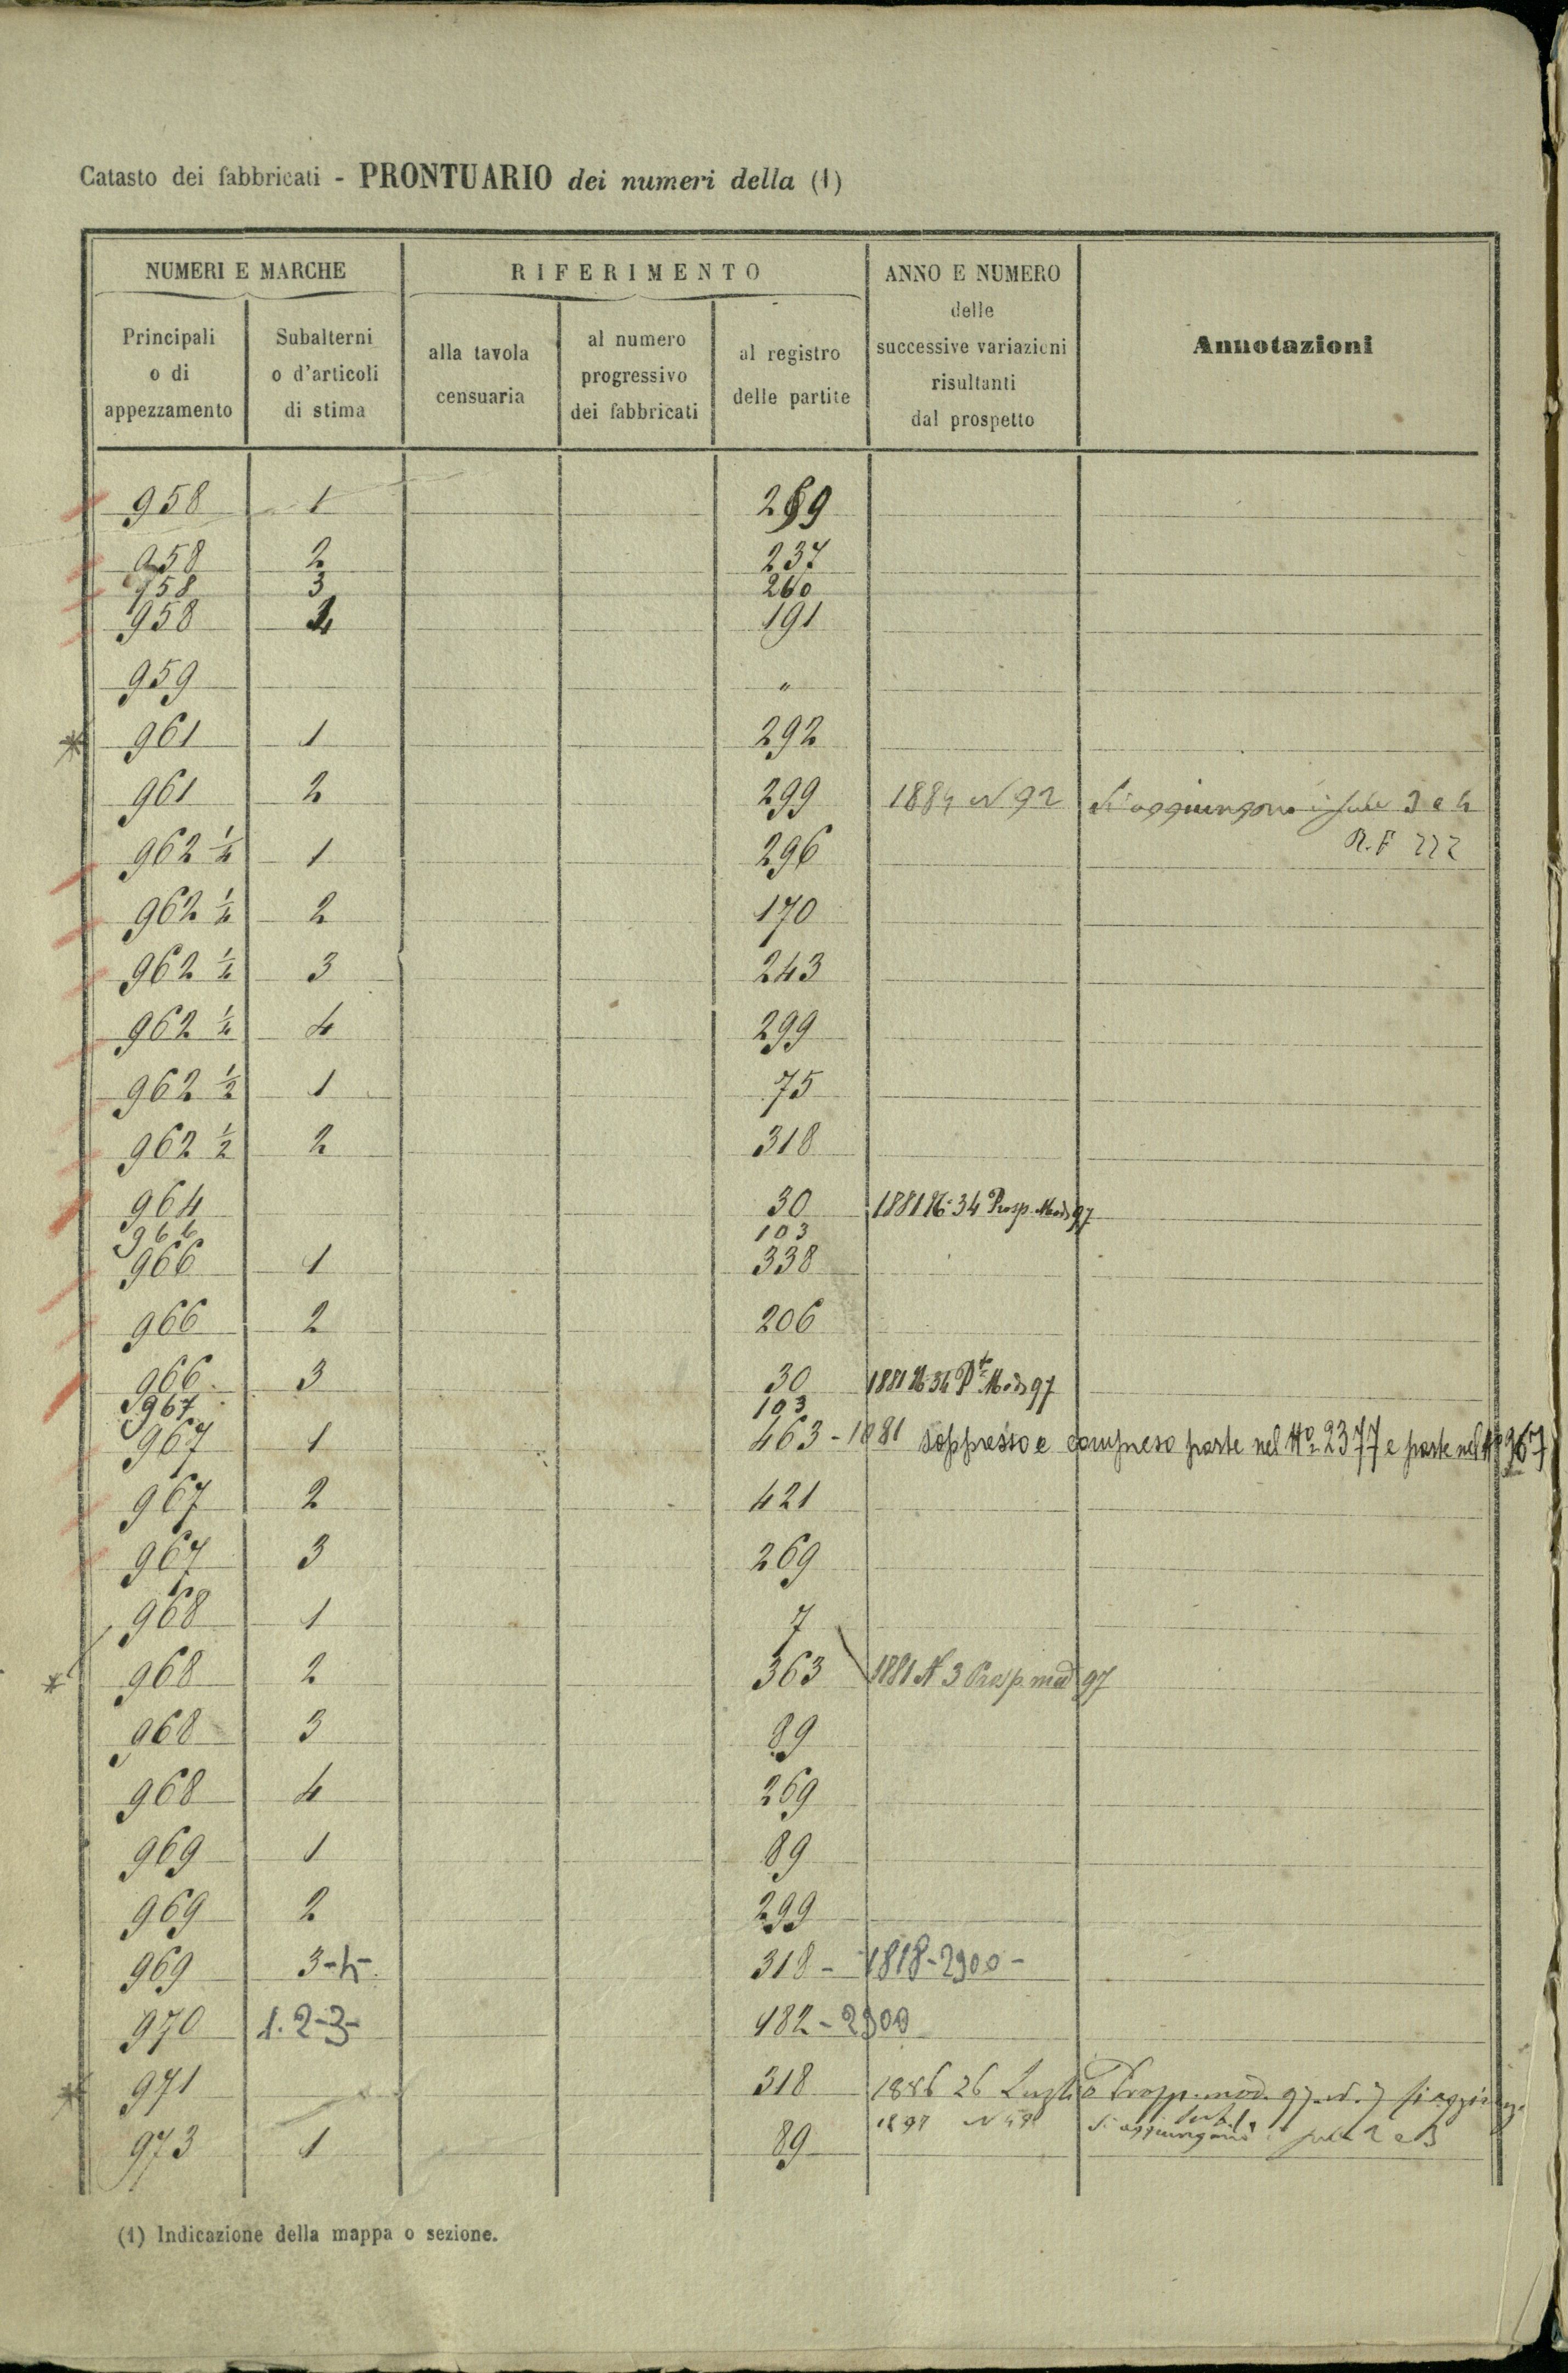 Catasto dei fabbricati - PRONTUARIO dei numeri della (1)
NUMERI E MARCHE
RIFERIMENTO
ANNO E NUMERO
delle
successive variazioni
risultanti
dal prospetto
Annotazioni
Principali
o di
appezzamento
Subalterni
o d'articoli
di stima
alla tavola
censuaria
al numero
progressivo
dei fabbricati
al registro
delle partite
958 1 289
958 2 237
958 3 260
958 4 191
959 "
* 961 1 292
961 2 299 1884 N 92 Si aggiungono i sub 3 e 4
R.F 222
962 ¼ 1 296
962 ¼ 2 170
962 ¼ 3 243
962 ¼ 4 299
962 ½ 1 75
962 ½ 2 318
964 30 1881 N. 34 Prosp. Mod 97
966 103
966 1 338
966 2 206
966 3 30 1881 N. 34 Pto Mod 97
967 103
967 1 463 - 1881 soppresso e compreso parte nel No 2377 e parte nel No 967
967 2 421
967 3 269
968 1 7
* 968 2 363 1881 N 3 Prosp. mod 97
968 3 89
968 4 269
969 1 89
969 2 299
969 3-4- 318 - 1818-2900 -
970 1. 2-3- 182 - 2900
* 971 318 1886 26 Luglio Prosp. mod. 97 N. 7 si aggiunge
973 1 89 1897 N 48 Si aggiungono i sub 2 e 3
(1) Indicazione della mappa o sezione.